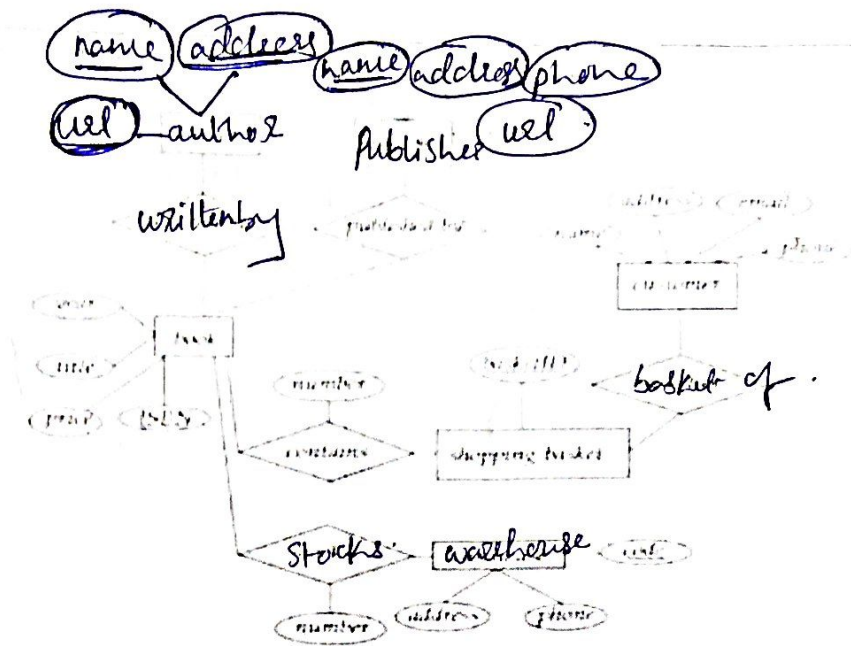 name address name address phone
url author Publisher url
writtenby published by
name address email phone
customer
year
book
title
number
basketID
basket of .
price ISBN
contains shopping basket
Stocks warehouse code
number address phone